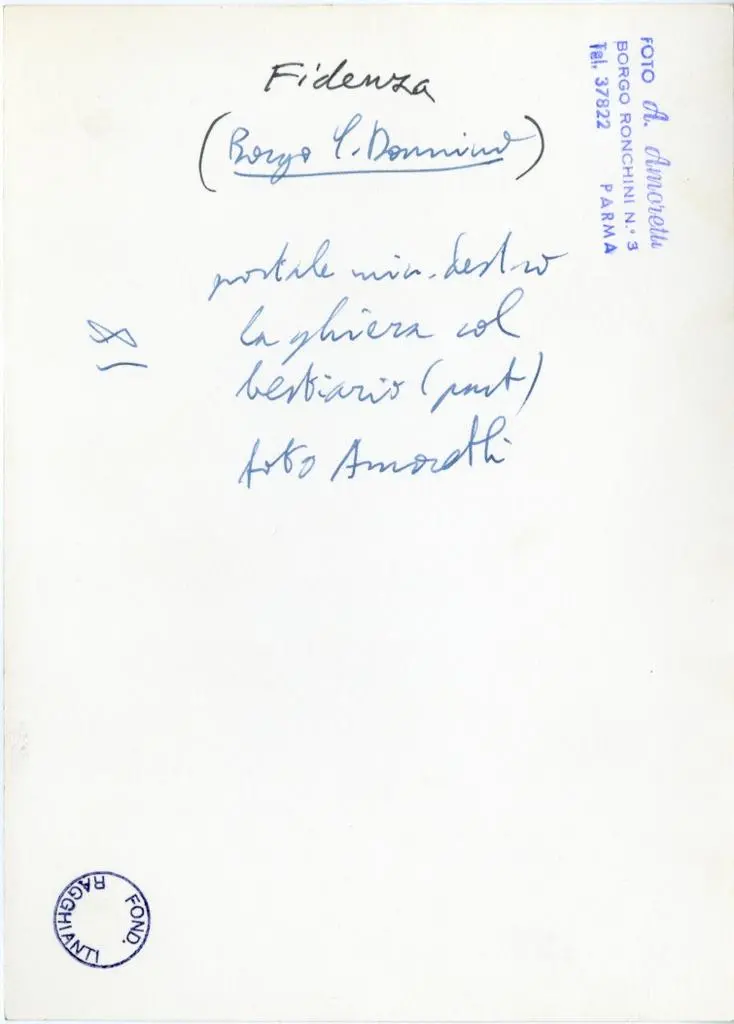 Fidenza
(Borgo S. Donnino)
portale min. destro
la ghiera col
bestiario (part)
foto Amoretti
FOTO A. Amoretti
BORGO RONCHINI N.° 3
Tel. 37822 PARMA
FOND. RAGGHIANTI